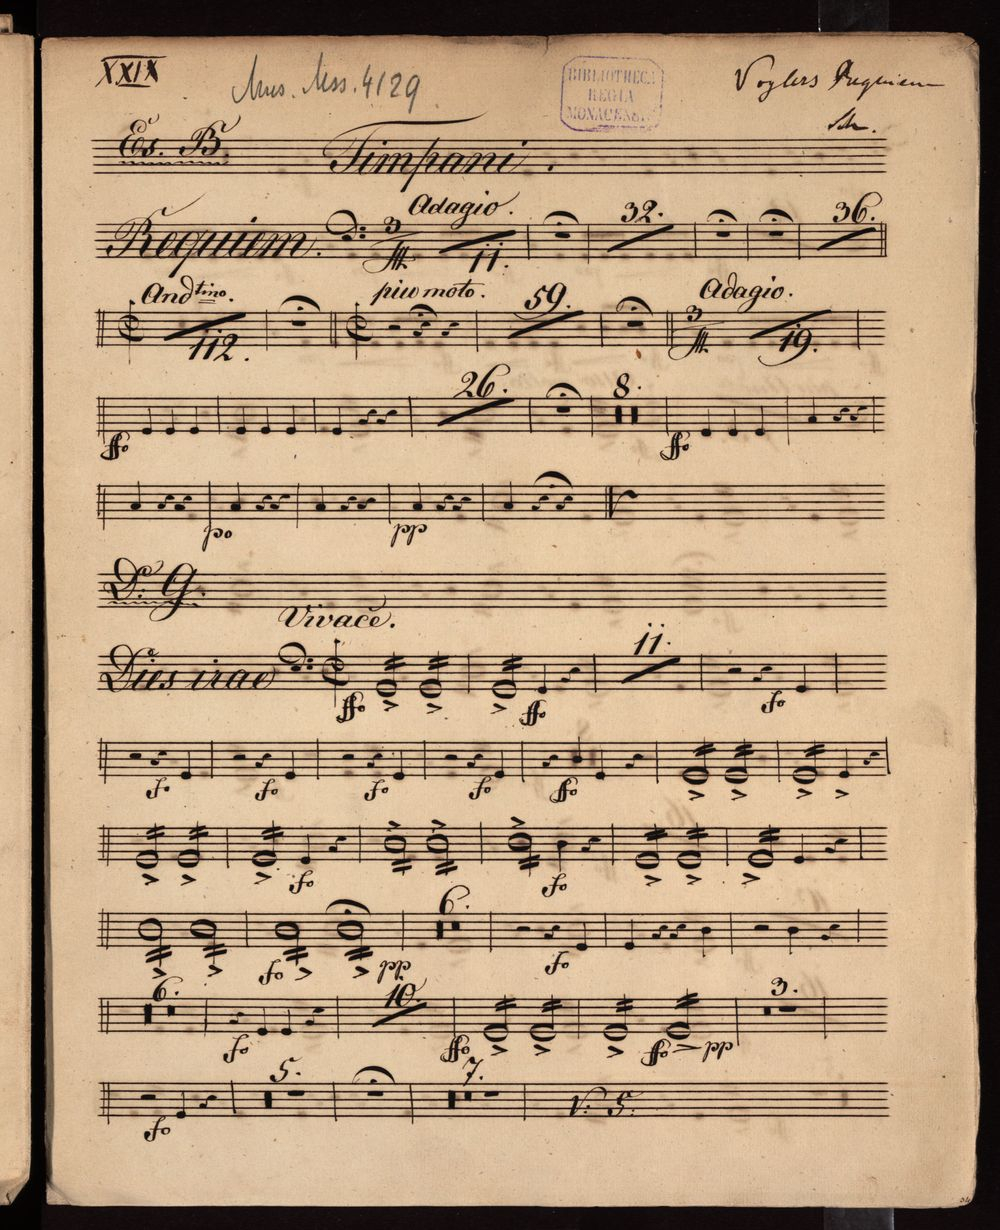 XXIX
Mus. Mss. 4129
BIBLIOTHECA
REGIA
MONACENSIS
Voglers Requiem
Es. B.
Timpani.
Adagio.
Requiem. 3 11. 32. 36.
Andtino. piu moto. Adagio.
112. 59. 3 19.
26. 8.
ffo ffo
po pp
D. G.
Vivace.
Dies irae 11.
ffo ffo fo
fo fo fo fo ffo
fo fo
6.
fo pp fo
6. 10. 3.
fo ffo ffo pp
5. 7. V: S:
fo